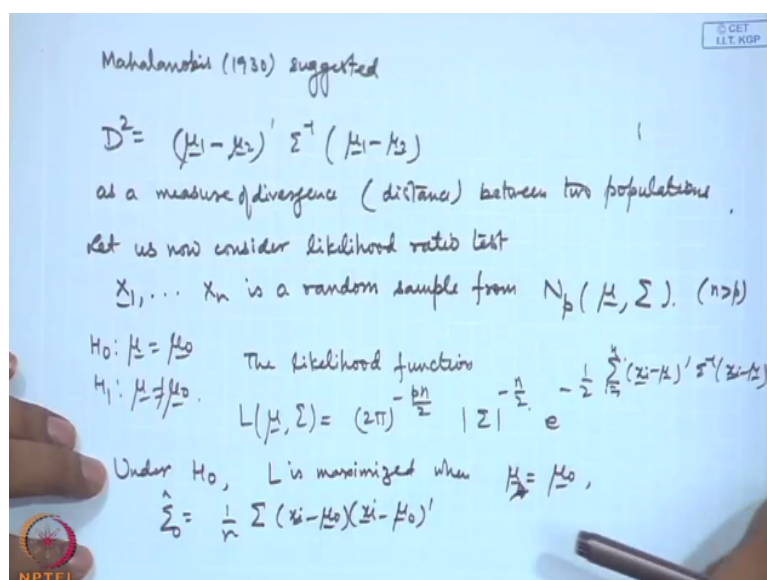 © CET
I.I.T. KGP
Mahalanobis (1930) suggested
D² = (μ̲₁ - μ̲₂)' Σ⁻¹ (μ̲₁ - μ̲₂)
as a measure of divergence (distance) between two populations.
Let us now consider likelihood ratio test
X̲₁, ... Xₙ is a random sample from Nₚ(μ̲, Σ). (n>p)
H₀: μ̲ = μ̲₀ The likelihood function
H₁: μ̲ ≠ μ̲₀. L(μ̲, Σ) = (2π)^(-pn/2) |Σ|^(-n/2) e^(-1/2 Σᵢ₌₁ⁿ (x̲ᵢ-μ̲)' Σ⁻¹ (x̲ᵢ-μ̲))
Under H₀, L is maximized when μ̲ = μ̲₀,
Σ̂₀ = 1/n Σ (x̲ᵢ - μ̲₀)(x̲ᵢ - μ̲₀)'
NPTEL